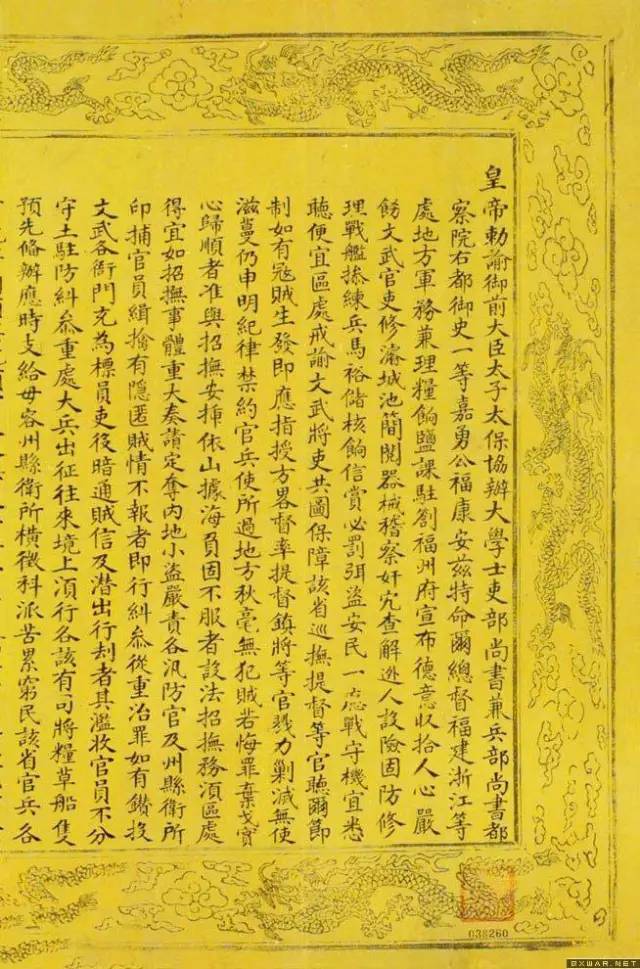 皇帝勅諭御前大臣太子太保協辦大學士吏部尚書兼兵部尚書都
察院右都御史一等嘉勇公福康安茲特命爾總督福建浙江等
處地方軍務兼理糧餉鹽課駐劄福州府宣布德意收拾人心嚴
飭文武官吏修濬城池簡閱器械稽察奸宄查解逃人設險固防修
理戰艦操練兵馬裕儲核餉信賞必罰弭盜安民一應戰守機宜悉
聽便宜區處戒諭文武將吏共圖保障該省巡撫提督等官聽爾節
制如有冦賊生發即應指授方畧督率提督鎮將等官戮力剿滅無使
滋蔓仍申明紀律禁約官兵使所過地方秋毫無犯賊若悔罪棄戈實
心歸順者准與招撫安揷依山據海負固不服者設法招撫務須區處
得宜如招撫事體重大奏請定奪內地小盜嚴責各汛防官及州縣衛所
印捕官員緝擒有隱匿賊情不報者即行糾叅從重治罪如有鑽投
文武各衙門充為標員吏役暗通賊信及潛出行刦者其濫收官員不分
守土駐防糾叅重處大兵出征往來境上須行各該有司將糧草船隻
預先偹辦應時支給毋容州縣衛所橫徵科派苦累窮民該省官兵各
038260
BXWAR.NET